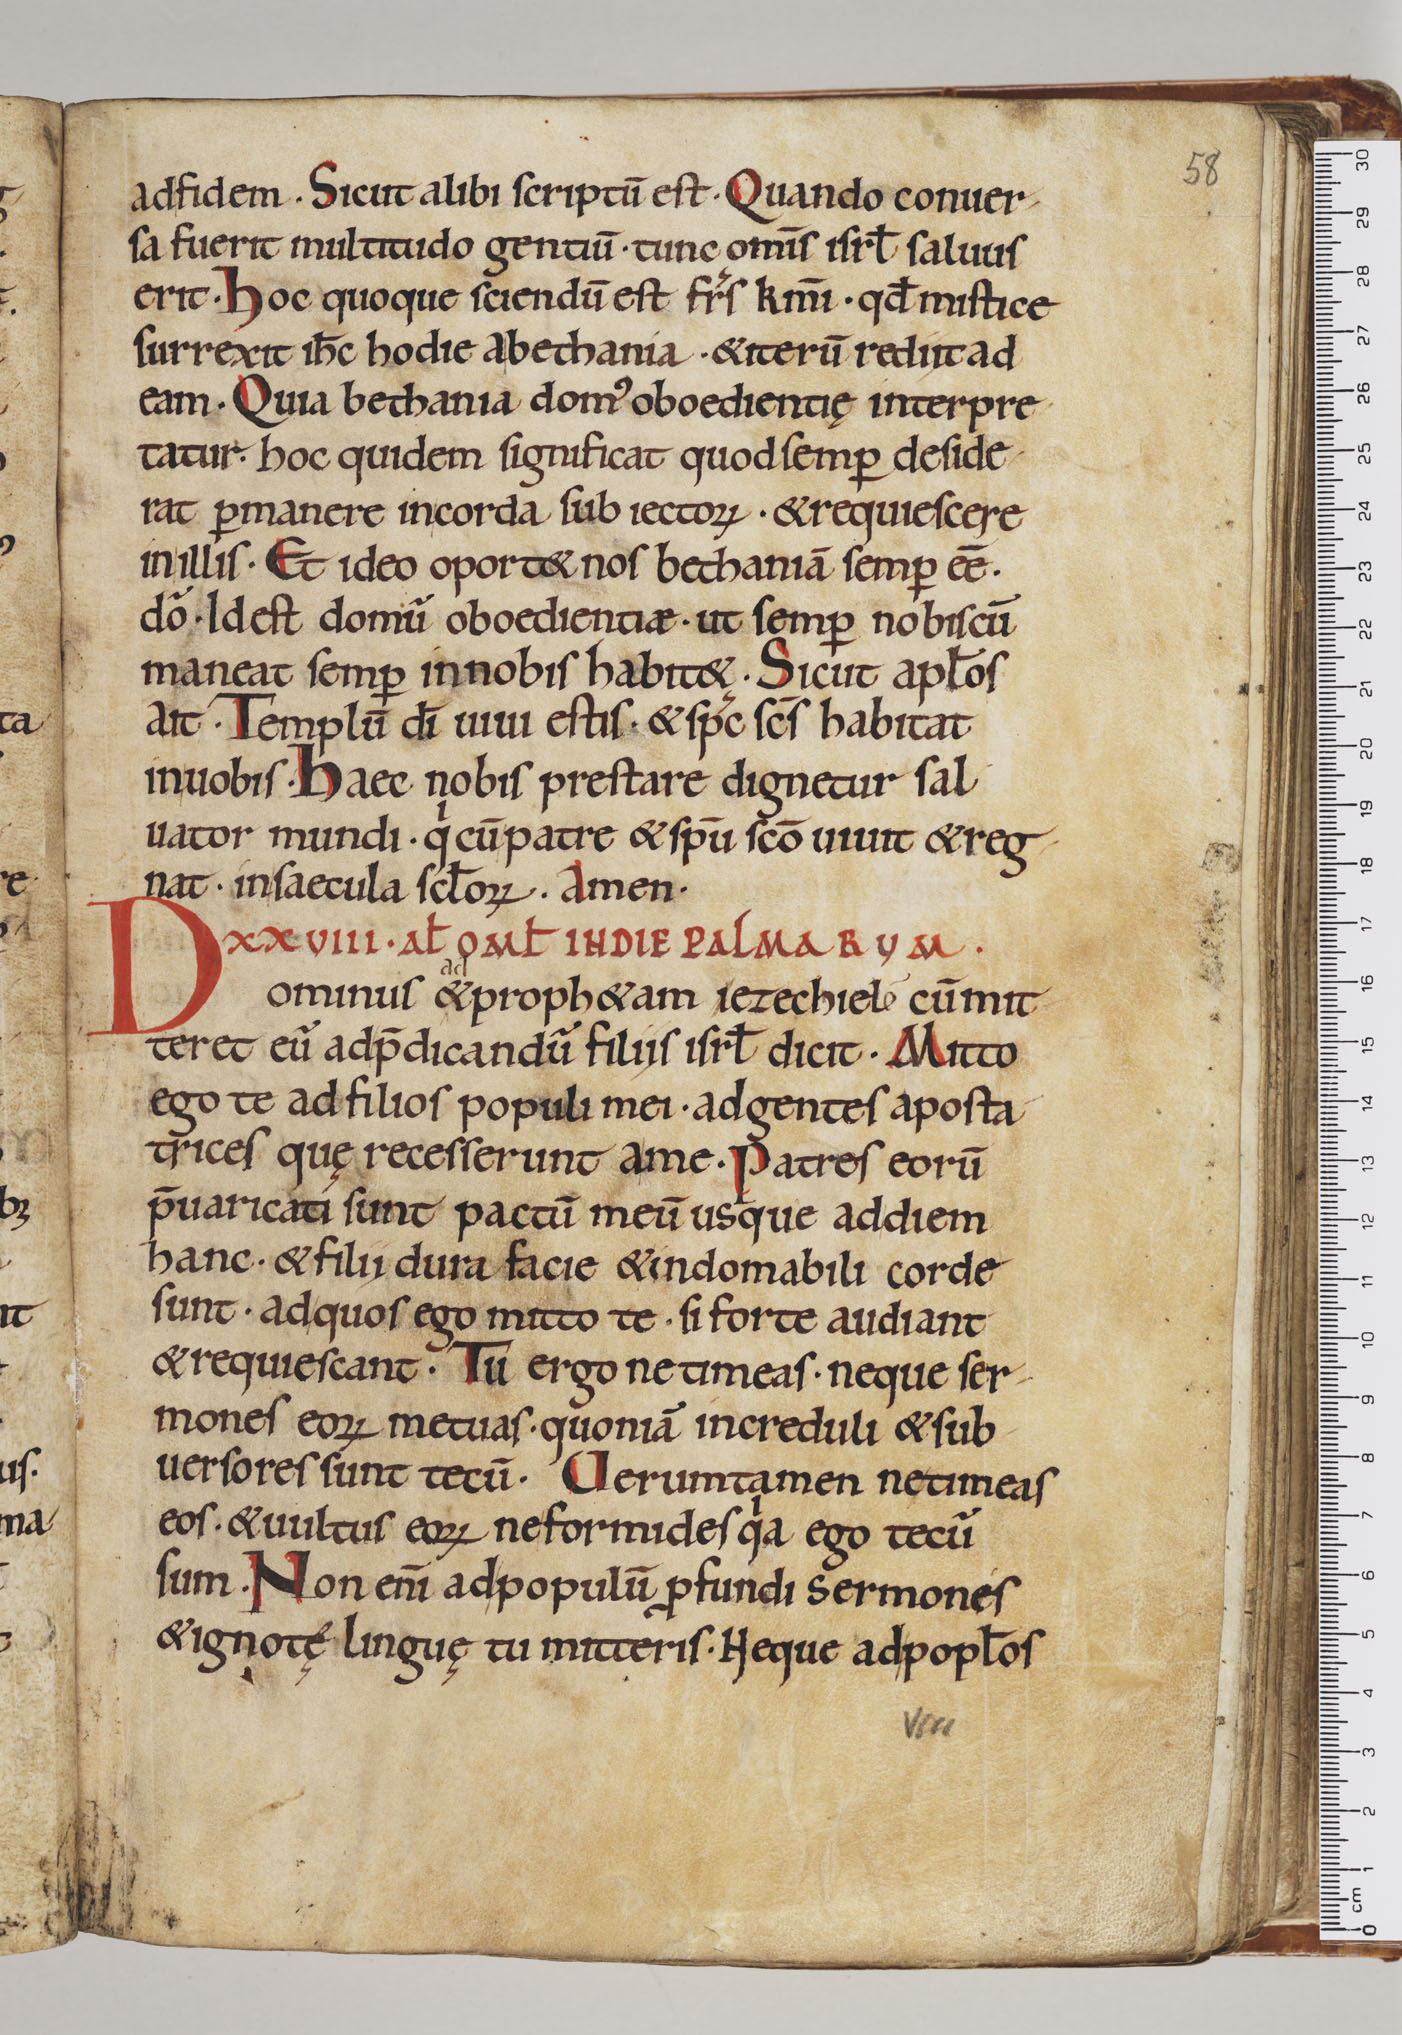 58
adfidem · Sicut alibi scriptū est · Quando conuer-
sa fuerit multitudo gentiū · tunc omīs isrł saluus
erit · Hoc quoque sciendū est frs̄ km̄i · qđ mistice
surrexit ih̄c hodie abethania · &iterū rediit ad
eam · Quia bethania domꝰ oboedientię interpre
tatur · hoc quidem significat quod semꝑ deside
rat ꝑmanere incorda sub iectoꝝ · &requiescere
inillis · Et ideo oport& nos bethaniā semꝑ eē ·
dō · Idest domū oboedientiæ · ut semꝑ nobiscū
maneat semꝑ innobis habit& · Sicut apłos
ait · Templū dī uiui estis · &sp̄c sc̄s habitat
inuobis · Haec nobis prestare dignetur sal
uator mundi · qͥ cūpatre &sp̄u sc̄o uiuit &reg-
nat · insaecula scłoꝝ · Amen ·
XXVIII · AŁ OMŁ INDIE PALMARUM ·
ad
Dominus &proph&am iezechielē cūmit
teret eū adp̄dicandū filiis isrł dicit · Mitto
ego te adfilios populi mei · adgentes aposta
trices quę recesserunt ame · Patres eorū
p̄uaricati sunt pactū meū usque addiem
hanc · &filii dura facie &indomabili corde
sunt · adquos ego mitto te · si forte audiant
&requiescant · Tu ergo netimeas · neque ser-
mones eoꝝ metuas · quoniā increduli &sub
uersores sunt tecū · Uerumtamen netimeas
eos · &uultus eoꝝ neformides qͥa ego tecū
sum · Non enī adpopulū ꝓfundi sermones
&ignotę linguę tu mitteris · Neque adpopłos
VIII
cm
0
1
2
3
4
5
6
7
8
9
10
11
12
13
14
15
16
17
18
19
20
21
22
23
24
25
26
27
28
29
30